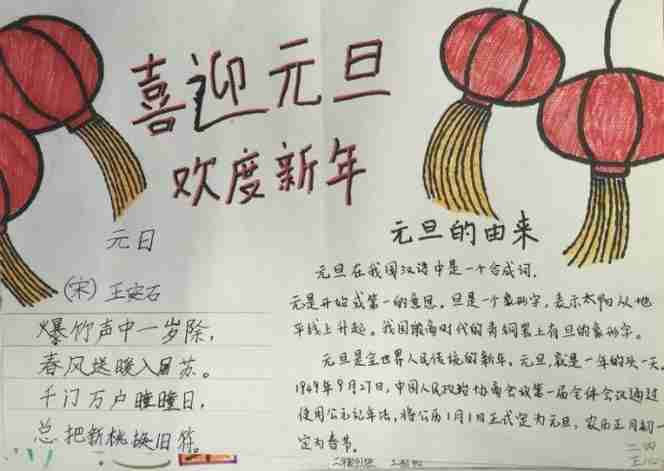 喜迎元旦
欢度新年
元日
(宋) 王安石
爆竹声中一岁除,
春风送暖入屠苏。
千门万户瞳瞳日,
总把新桃换旧符。
元旦的由来
元旦在我国汉语中是一个合成词,
元是开始或第一的意思。旦是一个象形字,表示太阳从地
平线上升起。我国殷商时代的青铜器上有旦的象形字。
元旦是全世界人民传统的新年。元旦,就是一年的头一天。
1949年9月27日,中国人民政治协商会议第一届全体会议通过
使用公元记年法,将公历1月1日正式定为元旦,农历正月初一
定为春节。